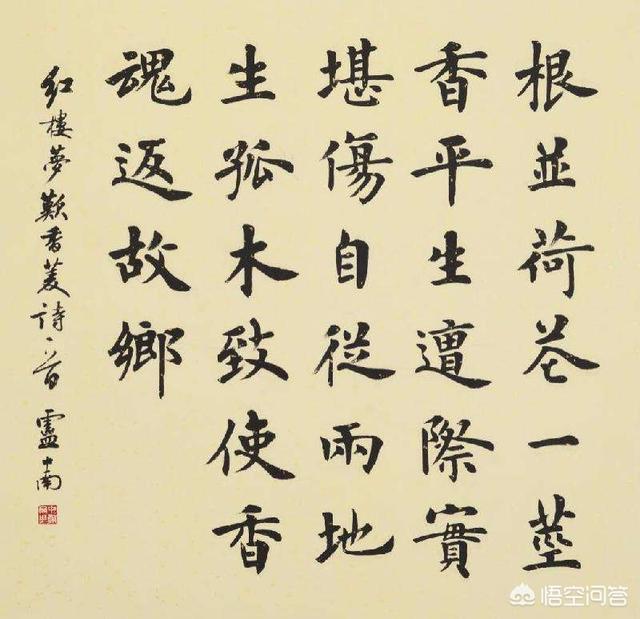 根並荷花一莖
香平生遭際實
堪傷自從兩地
生孤木致使香
魂返故鄉
紅樓夢歎香菱詩一首 盧中南
悟空问答